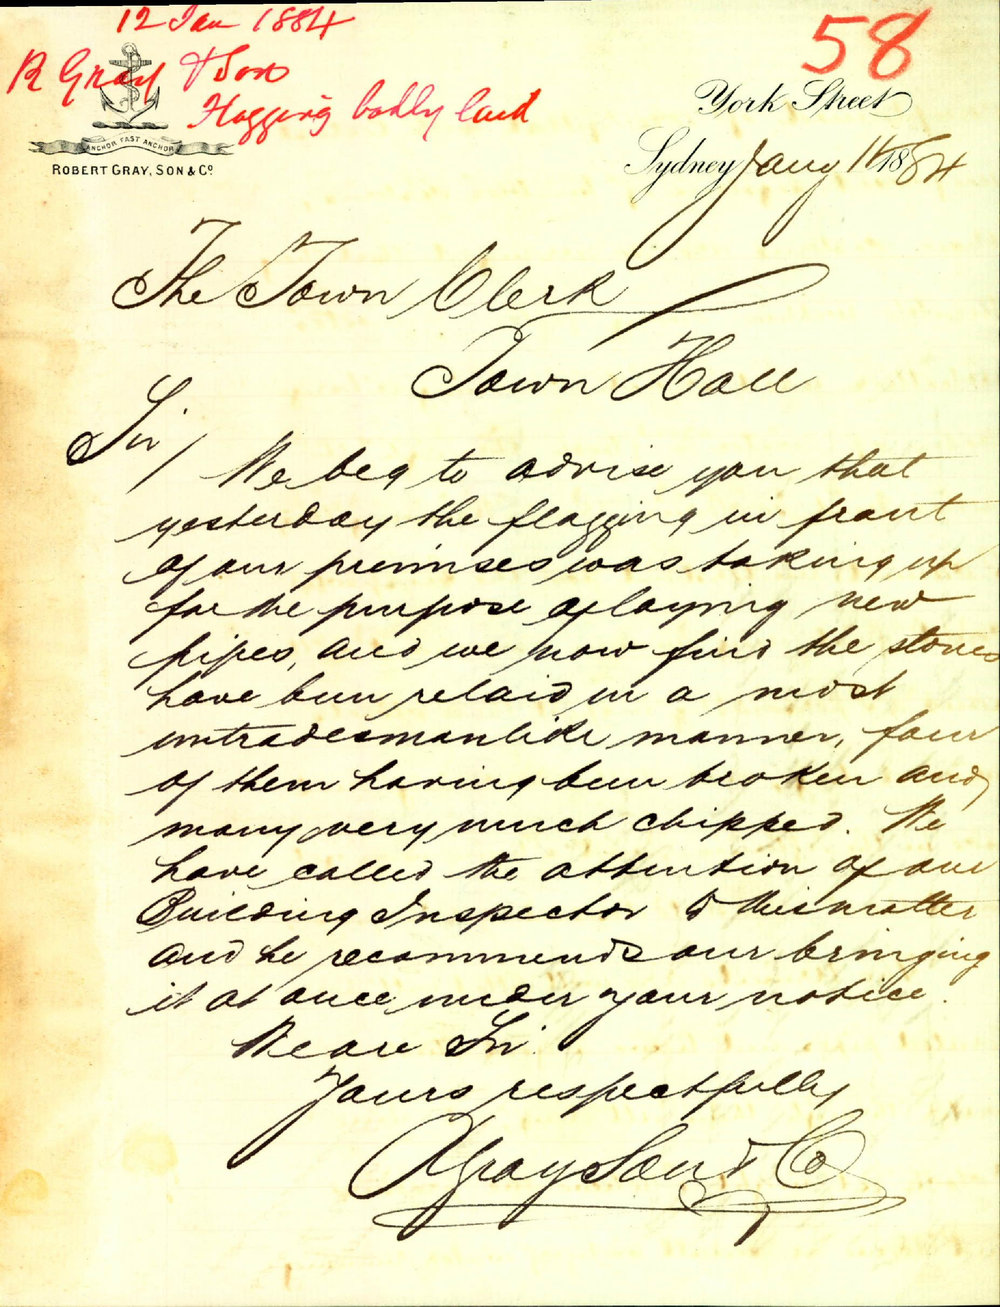 12 Jan 1884
58
R Gray & Son
Flagging badly laid
ANCHOR FAST ANCHOR
ROBERT GRAY, SON & Co.
York Street
Sydney Jany 11 1884
The Town Clerk
Town Hall
Sir/
We beg to advise you that
yesterday the flagging in front
of our premises was taking up
for the purpose of laying new
pipes, and we now find the stones
have been relaid in a most
untradesmanlike manner, four
of them having been broken and
many very much chipped. We
have called the attention of our
Building Inspector to this matter
and he recommends our bringing
it at once under your notice.
We are Sir
Yours respectfully
R Gray Son & Co